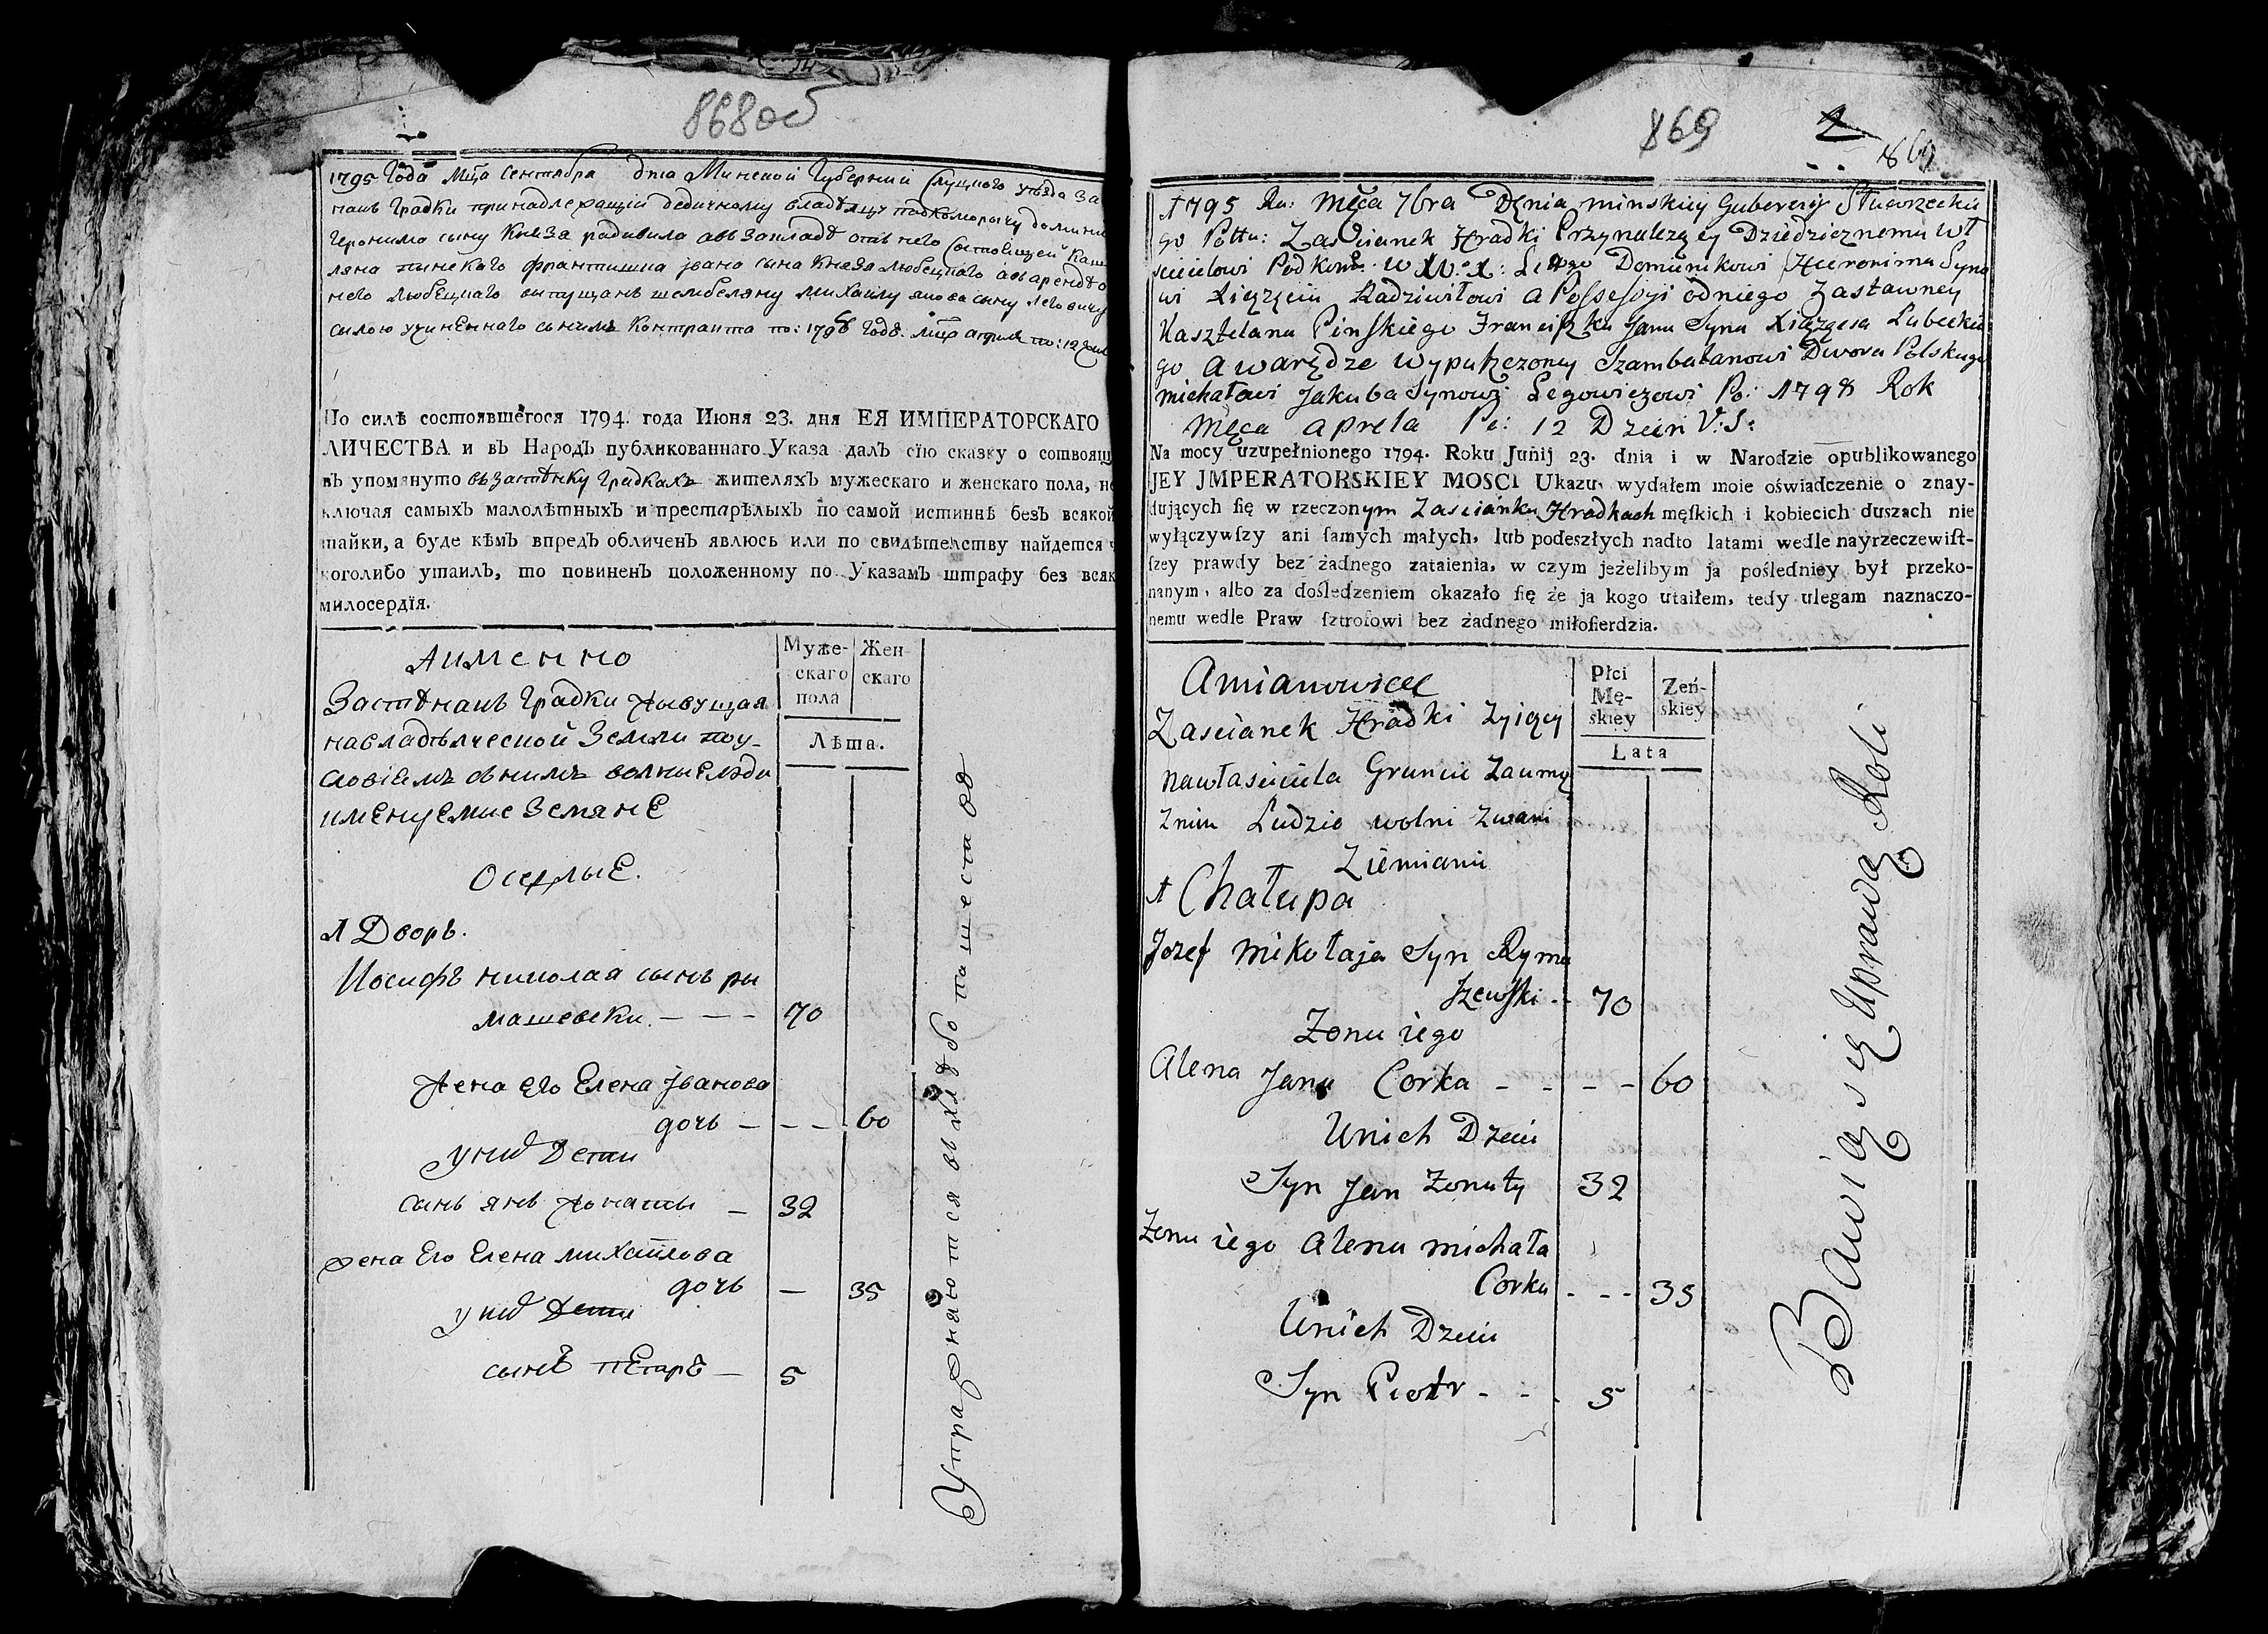 868об
1795 Года Мца Сентября дня Минской Губернии Слуцкого уезда За
Градки принадлежащии дедичному владелцу подкоморычу
Геронима сыну Князя радивила отъ него состоящей
пинскаго францишка јвана сына Князя любецкаго
него любецкаго михаилу якова сыну
силою учиненнаго сънимъ Контракта по: 1798 Годъ. Мца априля по: 12
По силѣ состоявшегося 1794. года Июня 23. дня ЕЯ ИМПЕРАТОРСКАГО
ЛИЧЕСТВА и въ Народъ публикованнаго Указа далъ сїю сказку о
въ упомянуто въ застенку Градкахъ жителяхъ мужескаго и женскаго пола, не
ключая самыхъ малолѣтныхъ и престарѣлыхъ по самой истиннѣ безъ всякой
тайки, а буде кѣмъ впредъ обличенъ явлюсь или по свидѣтелству найдется
коголибо утаилъ, то повиненъ положенному по Указамъ штрафу без всяк
милосердїя.
Муже-
скаго
пола
Жен
скаго
Лѣта.
Аименно
Застенакъ Градки живущая
навладѣлческой Земли поу-
словіемъ снимъ волные люди
именуемие Земяне
Оседлые.
1 Дворъ.
Иосифъ николая сынъ ри
машевски. - - - 70
жена его Елена јванова
дочь - - - 60
у них Дети
сынъ янъ жонаты - 32
жена Его Елена михайлова
дочь - 35
у них Дети
сынъ пЕтръ - 5
Упражняются въ хлебопашестве
869
2
869
1795 Ru: Męca 7bra Dęnia minskiey Gubernij Słuckiecku
go Pottu: Zascianek Hradki Przynalezącey Dziedzicznemu wł
scicielowi Podkom: W. X. Littgo Domunikowi Hieronima Syno
wi Xięzęciu Radziwiłowi a Possessyi odniego Zastawney
Kasztelana Pinskiego Franciszka Jana Syna Xiązęcia Lubecki
go a warędze wypuszczoney Szambalanowi Dwora Polskiego
michałowi Jakuba Synowi Legowiczowi Po: 1798 Rok
Męca Aprela Po: 12 Dzien V: S:
Na mocy uzupełnionego 1794. Roku Junij 23. dnia i w Narodzie opublikowanego
JEY JMPERATORSKIEY MOSCI Ukazu, wydałem moie oświadczenie o znay-
dujących ſię w rzeczonym Zascianku Hradkach męſkich i kobiecich duszach nie
wyłączywſzy ani ſamych małych, lub podeszłych nadto latami wedle nayrzeczewiſt-
ſzey prawdy bez żadnego zataienia, w czym jeżelibym ja pośledniey był przeko-
nanym, albo za dośledzeniem okazało ſię że ja kogo utaiłem, tedy ulegam naznaczo-
nemu wedle Praw ſztrofowi bez żadnego miłoſierdzia.
Płci
Mę-
skiey
Zeń-
skiey
Lata
Amianowicie
Zascianek Hradki Zyiący
nawłasciciela Gruncie Zaumą
Znim Ludzie wolni Zwani
Ziemianie
1 Chałupa
Jozef mikołaja Syn Ryma
szewski - - 70
Zona iego
Alena Jana Corka - - - - 60
Unich Dzieci
Syn Jan Zonaty 32
Zona iego Alena michała
Corka - - - 35
Unich Dzieci
Syn Piotr - - - 5
Bawią się Uprawą Roli